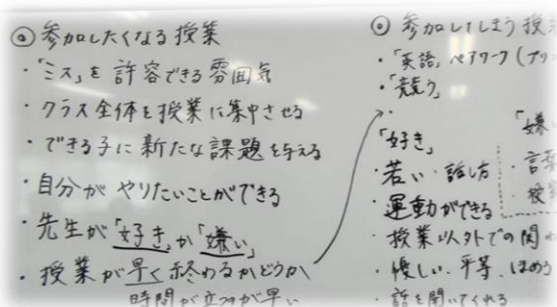 ◎ 参加したくなる授業
・「ミス」を許容できる雰囲気
・クラス全体を授業に集中させる
・できる子に新たな課題を与える
・自分がやりたいことができる
・先生が「好き」か「嫌い」
・授業が早く終わるかどうか
時間が立つのが早い
◎ 参加してしまう授
・「英語」ペアワーク(プリ
・「競う」
「好き」
・若い・話し方
・運動ができる
・授業以外での関わ
・優しい、平等、ほめる
話を聞いてくれる
「嫌い
・言
・授